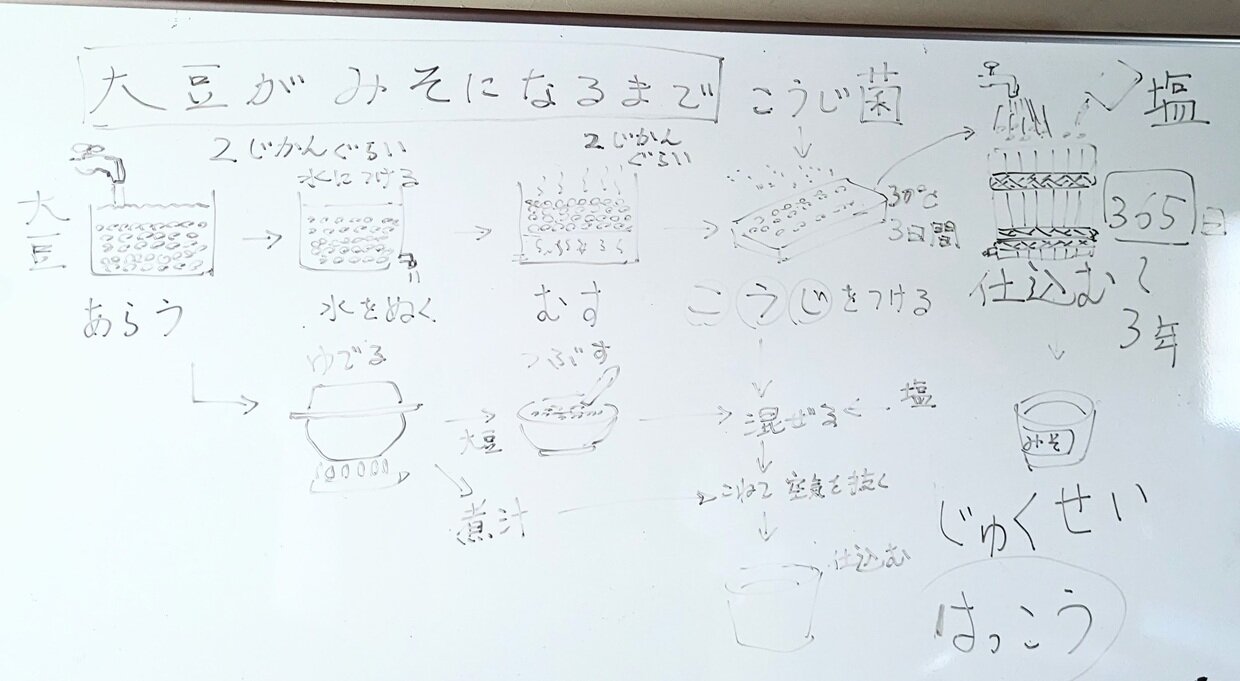 大豆がみそになるまで
こうじ菌
塩
大豆
あらう
2じかんぐらい
水につける
水をぬく
2じかん
ぐらい
むす
30℃
3日間
こうじをつける
365日
仕込む〜
3年
ゆでる
大豆
つぶす
混ぜる
塩
煮汁
こねて空気を抜く
仕込む
みそ
じゅくせい
はっこう